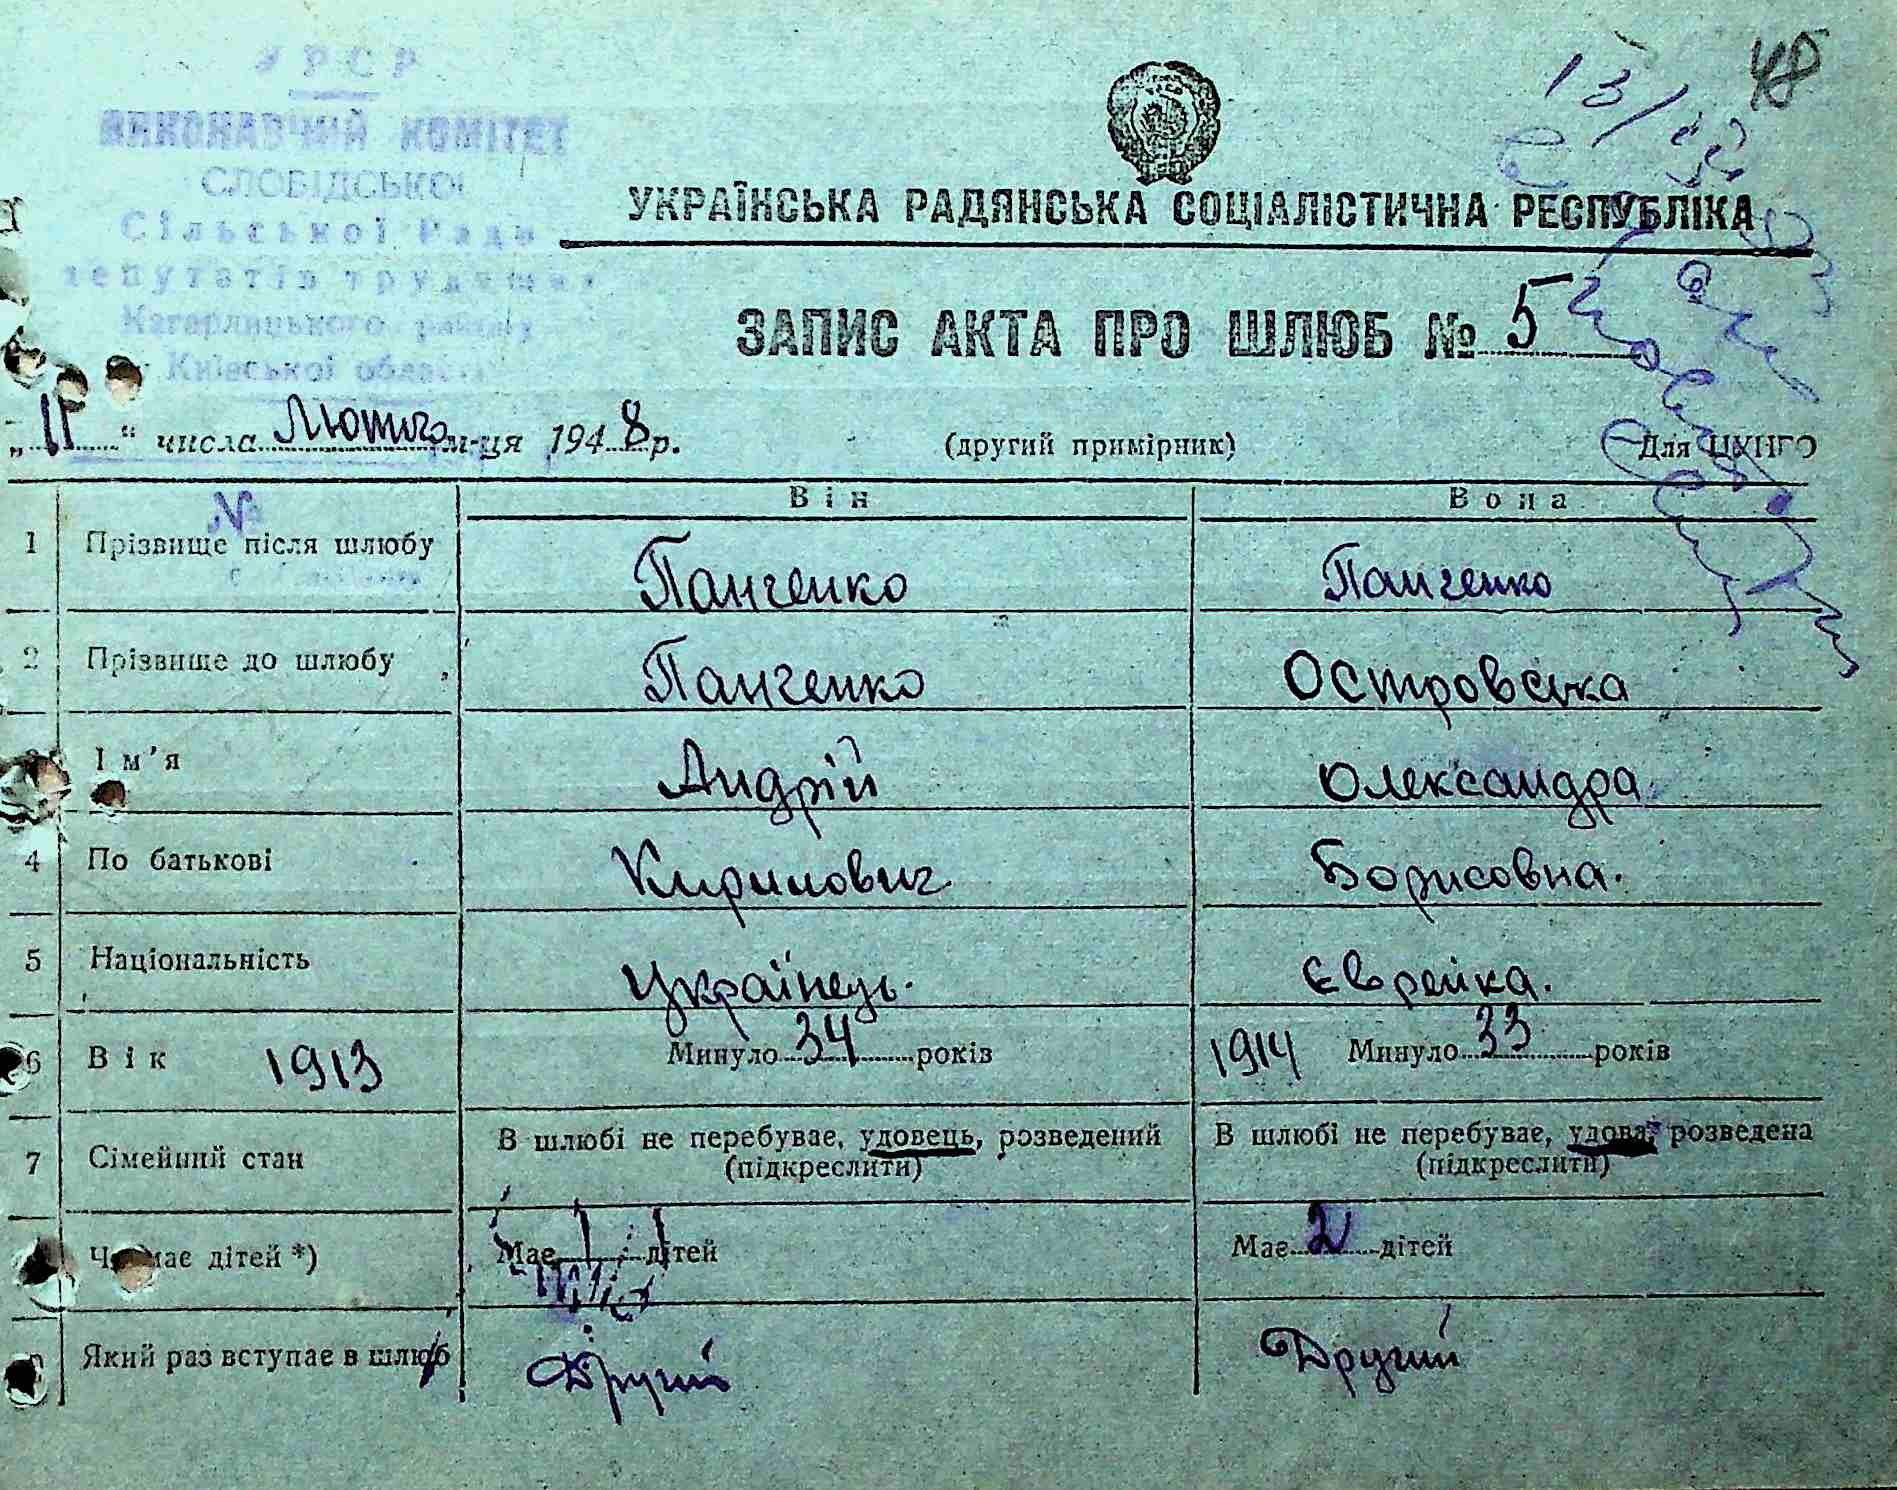 УРСР
ВИКОНАВЧИЙ КОМІТЕТ
СЛОБІДСЬКОЇ
Сільської Ради
депутатів трудящих
Кагарлицького району
Київської області
№
13/
48
УКРАЇНСЬКА РАДЯНСЬКА СОЦІАЛІСТИЧНА РЕСПУБЛІКА
ЗАПИС АКТА ПРО ШЛЮБ № 5
„11“ числа Лютого м-ця 1948 р.
(другий примірник)
Для ЦУНГО
Він Вона
1 Прізвище після шлюбу Панченко Панченко
2 Прізвище до шлюбу Панченко Островська
3 Ім’я Андрій Олександра
4 По батькові Кирилович Борисовна.
5 Національність Українець. Єврейка.
6 Вік 1913 Минуло 34 років 1914 Минуло 33 років
7 Сімейний стан В шлюбі не перебуває, удовець, розведений В шлюбі не перебуває, удова, розведена
(підкреслити) (підкреслити)
Чи має дітей *) Має дітей Має 2 дітей
Який раз вступає в шлюб Другий Другий